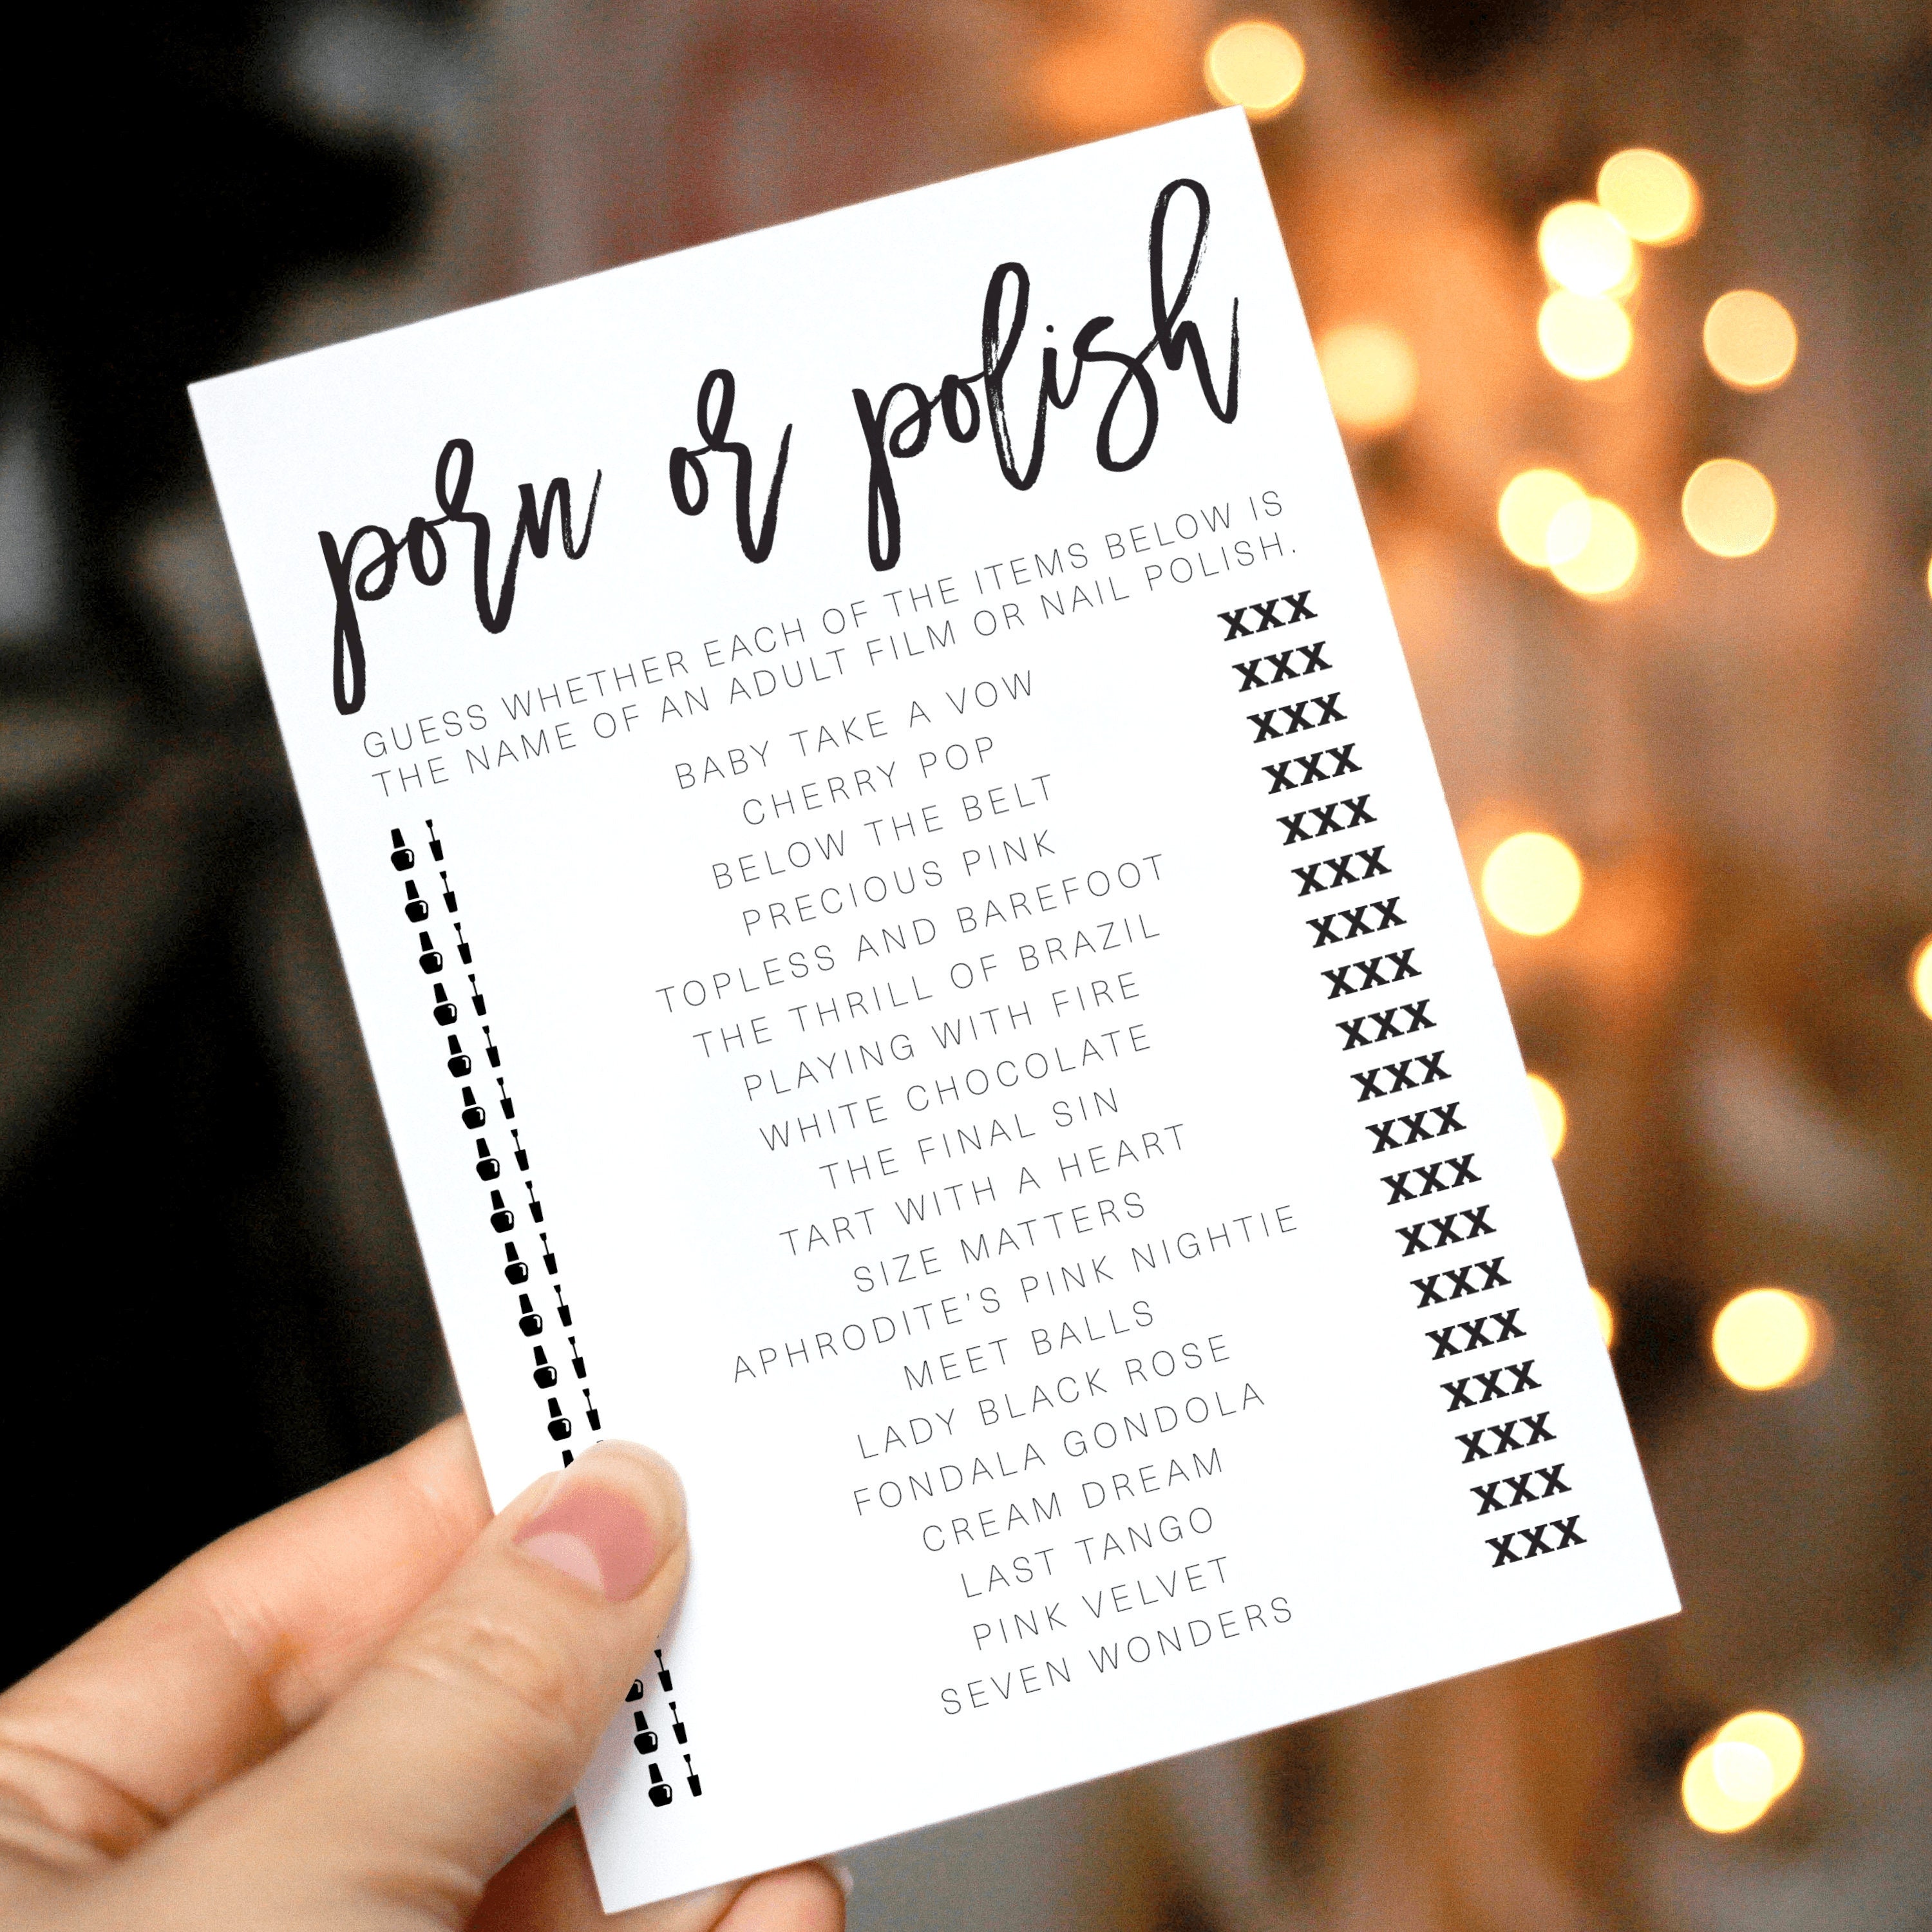 porn or polish
GUESS WHETHER EACH OF THE ITEMS BELOW IS
THE NAME OF AN ADULT FILM OR NAIL POLISH.
BABY TAKE A VOW XXX
CHERRY POP XXX
BELOW THE BELT XXX
PRECIOUS PINK XXX
TOPLESS AND BAREFOOT XXX
THE THRILL OF BRAZIL XXX
PLAYING WITH FIRE XXX
WHITE CHOCOLATE XXX
THE FINAL SIN XXX
TART WITH A HEART XXX
SIZE MATTERS XXX
APHRODITE'S PINK NIGHTIE XXX
MEET BALLS XXX
LADY BLACK ROSE XXX
FONDALA GONDOLA XXX
CREAM DREAM XXX
LAST TANGO XXX
PINK VELVET XXX
SEVEN WONDERS XXX